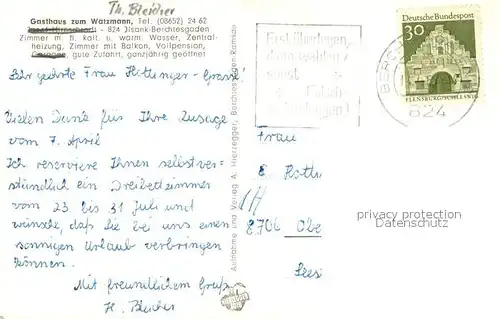 Th. Bleicher
Gasthaus zum Watzmann, Tel. (08652) 24 62
824 Jlsank-Berchtesgaden
Zimmer m. fl. kalt. u. warm. Wasser, Zentral-
heizung, Zimmer mit Balkon, Vollpension,
Garagen, gute Zufahrt, ganzjährig geöffnet
Sehr geehrte Frau Hottinger-
Vielen Dank für Ihre Zusage
vom 7. April
Ich reserviere Ihnen selbstver-
ständlich ein Dreibettzimmer
vom 23. bis 31 Juli und
wünsche, daß Sie bei uns einen
sonnigen Urlaub verbringen
können.
Mit freundlichem Gruß
H. Bleicher
Aufnahme und Verlag A. Hierzegger, Berchtesgaden-Ramsau
Erst überlegen,
dann wählen
sonst
Deutsche Bundespost
30
FLENSBURG/SCHLESWIG
BERCH
824
Frau
8706
Sees
privacy protection
Datenschutz